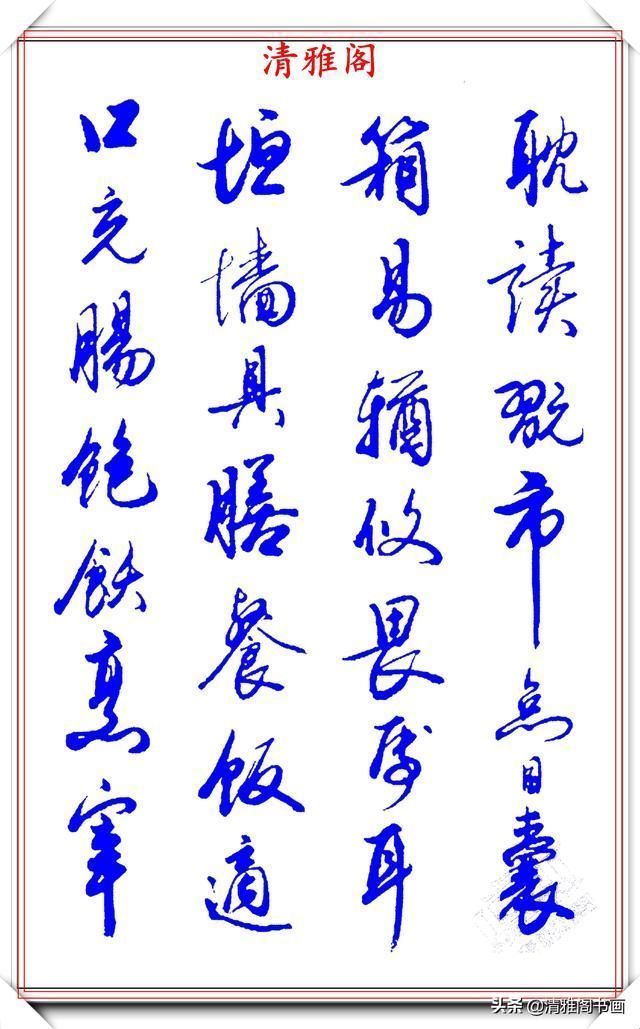 清雅阁
耽讀翫市寓目囊
箱易輶攸畏属耳
垣墻具膳餐飯適
口充腸飽飫烹宰
头条 @清雅阁书画